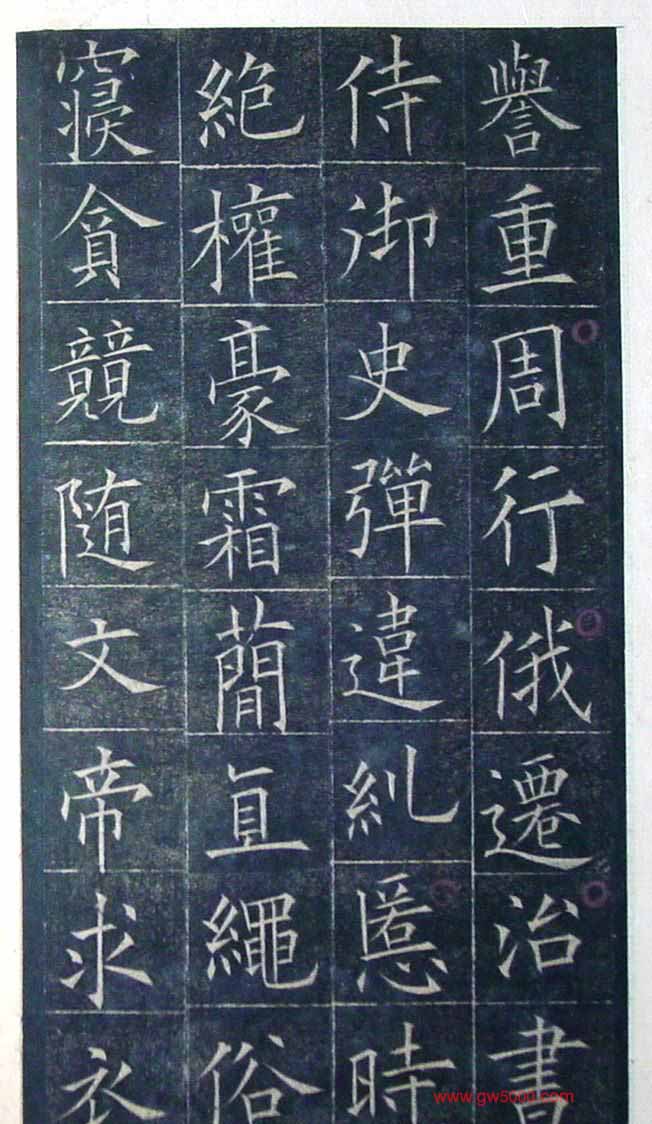 譽重周行俄遷治書
侍御史彈違糺慝時
絶權豪霜蕳直繩俗
寑貪競随文帝求衣
www.gw5000.com